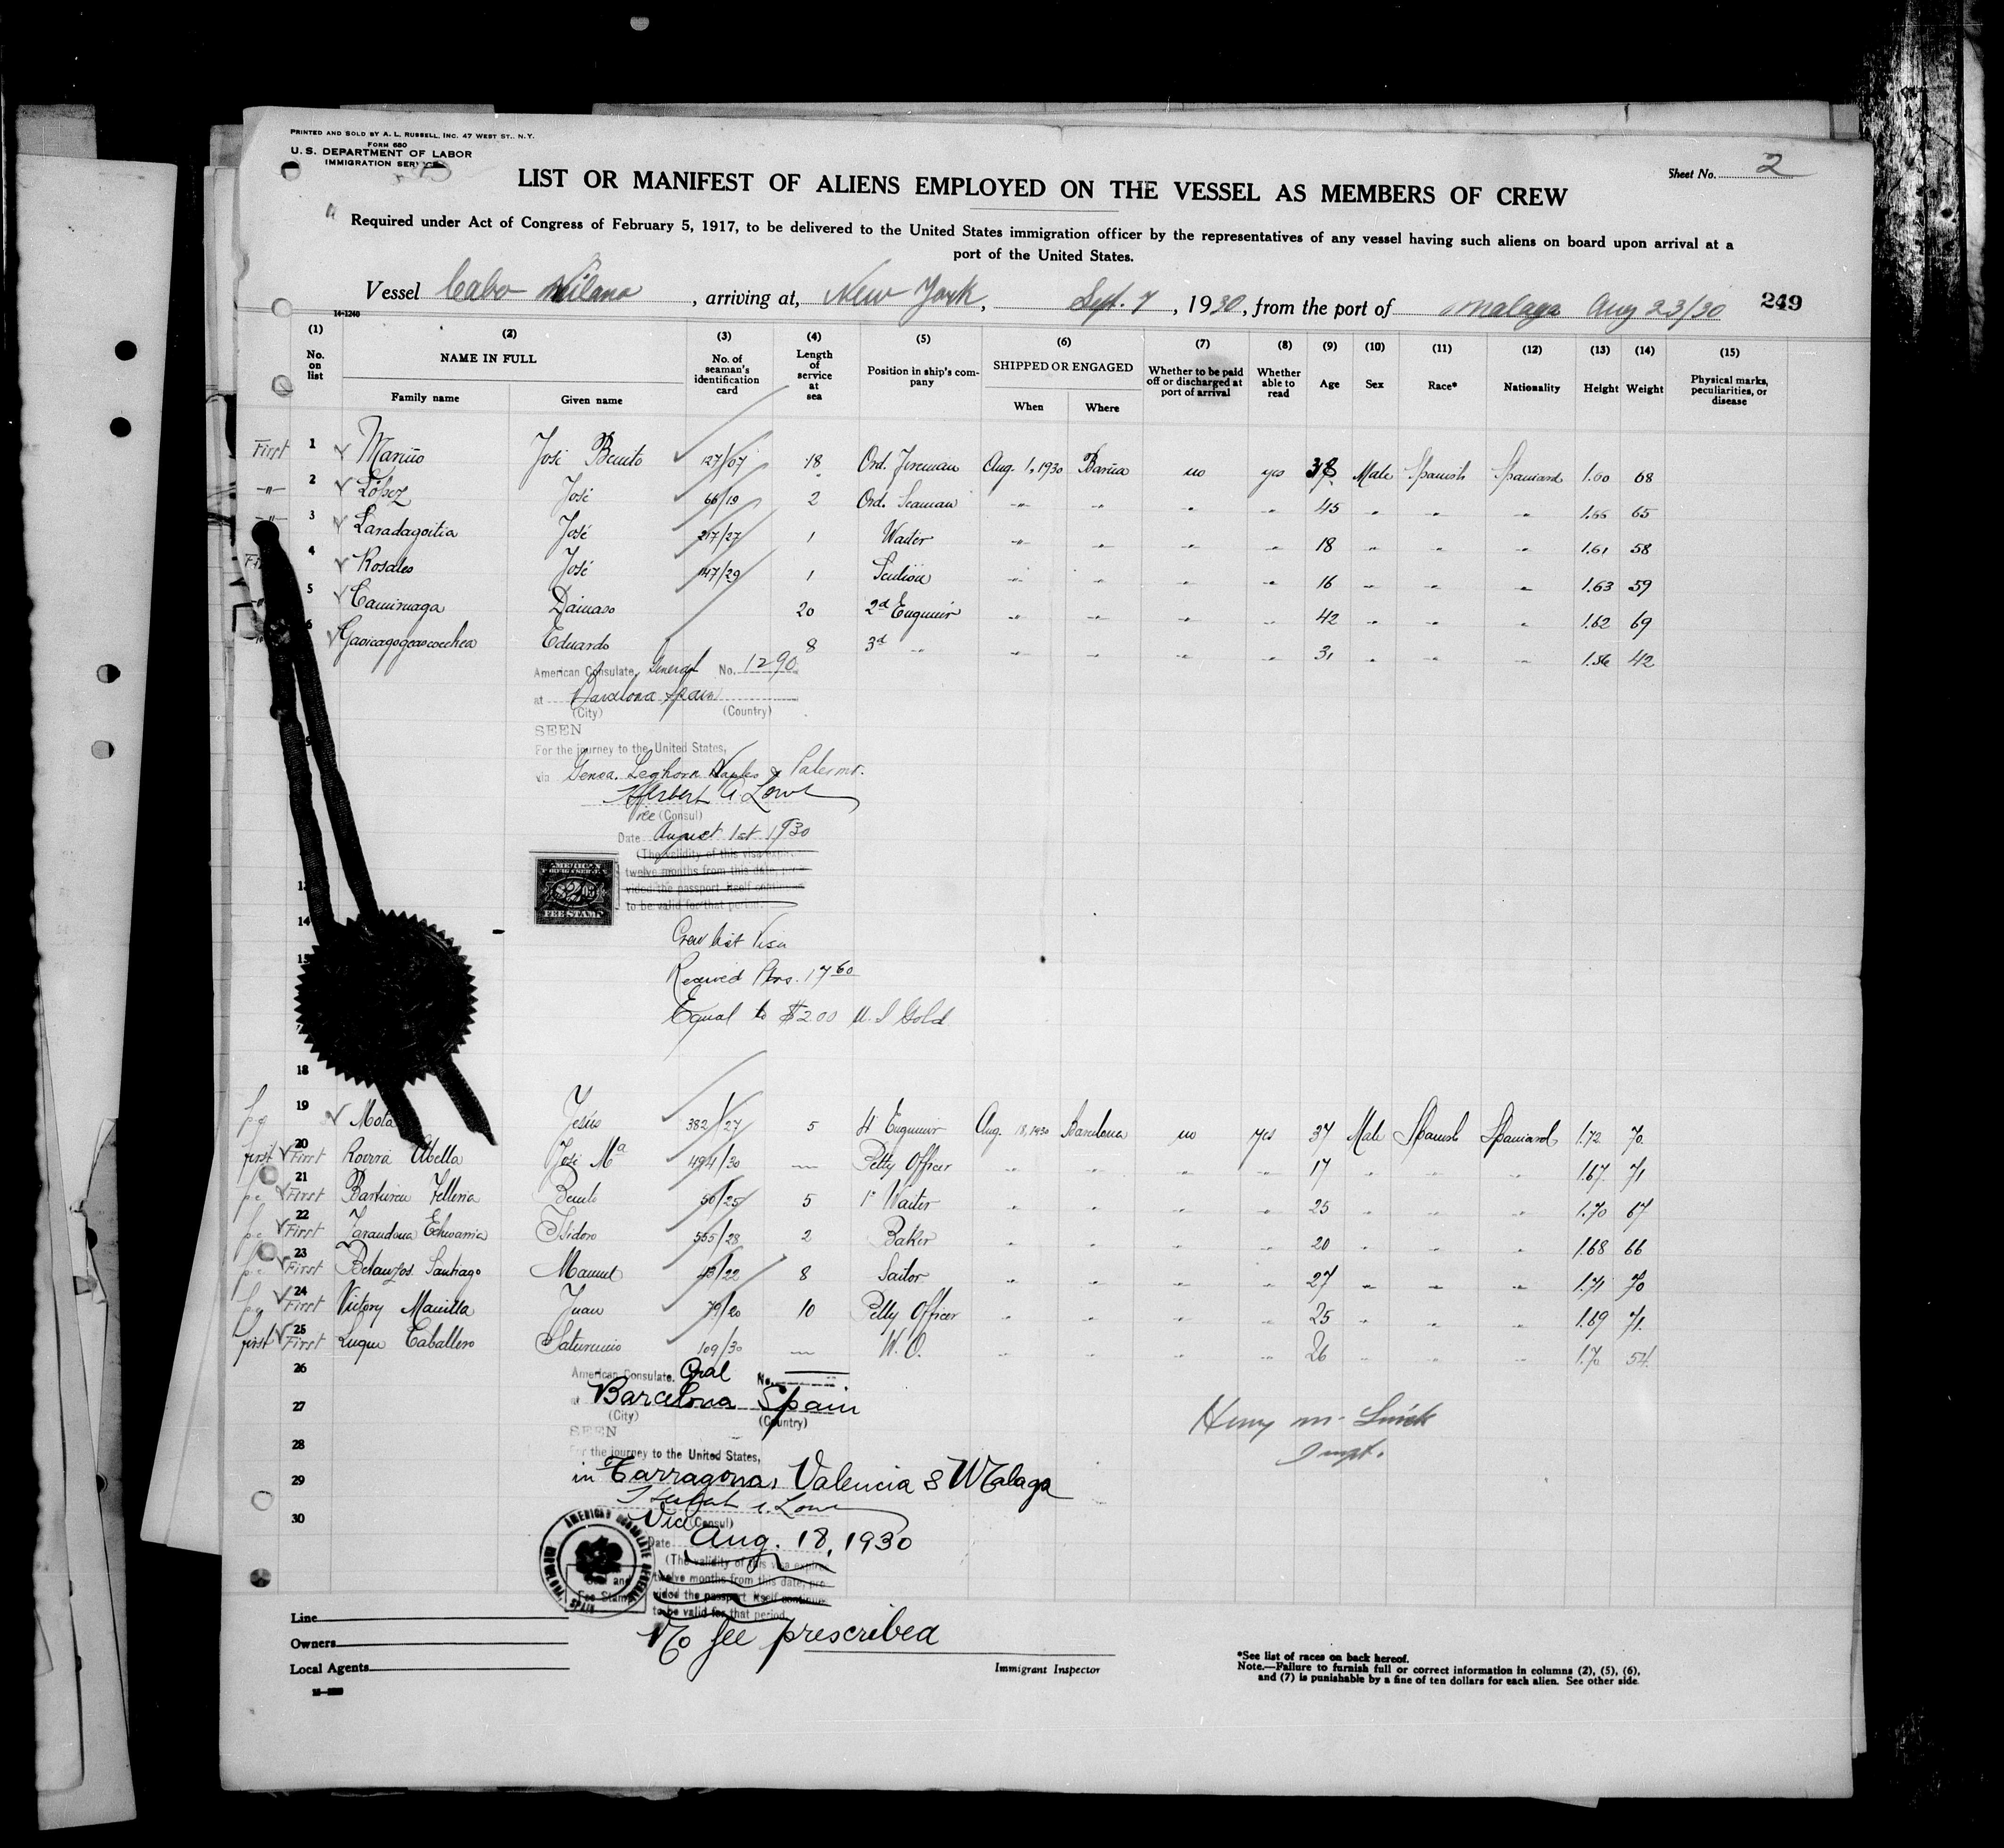 PRINTED AND SOLD BY A. L. RUSSELL, INC. 47 WEST ST., N.Y.
FORM 680
U. S. DEPARTMENT OF LABOR
IMMIGRATION SERVICE
Sheet No. 2
LIST OR MANIFEST OF ALIENS EMPLOYED ON THE VESSEL AS MEMBERS OF CREW
Required under Act of Congress of February 5, 1917, to be delivered to the United States immigration officer by the representatives of any vessel having such aliens on board upon arrival at a
port of the United States.
Vessel Cabo , arriving at, New York, Sept. 7, 1930, from the port of Malaga Aug 23/30 249
14-1240
(1) (2) (3) (4) (5) (6) (7) (8) (9) (10) (11) (12) (13) (14) (15)
No. on list NAME IN FULL No. of seaman's identification card Length of service at sea Position in ship's company SHIPPED OR ENGAGED Whether to be paid off or discharged at port of arrival Whether able to read Age Sex Race* Nationality Height Weight Physical marks, peculiarities, or disease
Family name Given name When Where
First 1 Mariño José Benito 127/07 18 Ord. Fireman Aug. 1, 1930 no yes 38 Male Spanish Spaniard 1.60 68
-"- 2 López José 66/19 2 Ord. Seaman -"- -"- " " 45 " " " 1.66 65
-"- 3 Laradagoitia José 217/27 1 Waiter -"- " " " 18 " " " 1.61 58
4 Rosales José 147/29 1 -"- " " " 16 " " " 1.63 59
5 Damaso 20 2d Engineer " " " " 42 " " " 1.62 69
6 Eduardo 8 3d " " " " " 31 " " " 1.56 42
American Consulate General No. 1290
at Barcelona Spain
(City) (Country)
SEEN
For the journey to the United States,
via Genoa, Leghorn Naples & Palermo.
Herbert A Lowe
Vice (Consul)
Date August 1st 1930
(The validity of this visa expires
twelve months from this date, pro-
vided the passport itself continues
to be valid for that period.
AMERICAN
FOREIGN SERVICE
$2
FEE STAMP
14
Crew list Visa
15
Received Ptas. 17 60
Equal to $2.00 U. S Gold
18
19 Mota Jesús 382/27 5 4 Engineer Aug. 18, 1930 Barcelona no yes 37 Male Spanish Spaniard 1.72 70
first First 20 Rovira Abella José Ma 494/30 — Petty Officer " " " " 17 " " " 1.67 71
First 21 Benito 50/25 5 1º Waiter " " " " 25 " " " 1.70 67
First 22 Isidoro 555/28 2 Baker " " " " 20 " " " 1.68 66
First 23 Betanzos Santiago Manuel 43/22 8 Sailor " " " " 27 " " " 1.71 70
First 24 Victory Manilla Juan 79/20 10 Petty Officer " " " " 25 " " " 1.69 71
first First 25 Luque Caballero Saturnino 109/30 — W. O. " " " " 26 " " " 1.70 54
26
American Consulate. Gral No.
at Barcelona Spain
27
(City) (Country)
SEEN
Henry M.
Inspt.
28
For the journey to the United States,
29
in Tarragona, Valencia & Malaga
Herbert A. Lowe
30
Vice (Consul)
Date Aug. 18, 1930
(The validity of this visa expires
twelve months from this date, pro-
vided the passport itself continues
to be valid for that period.
Fee Stamp
SPAIN
No fee prescribed
Line
Owners
Local Agents
Immigrant Inspector
*See list of races on back hereof.
Note.—Failure to furnish full or correct information in columns (2), (5), (6),
and (7) is punishable by a fine of ten dollars for each alien. See other side.